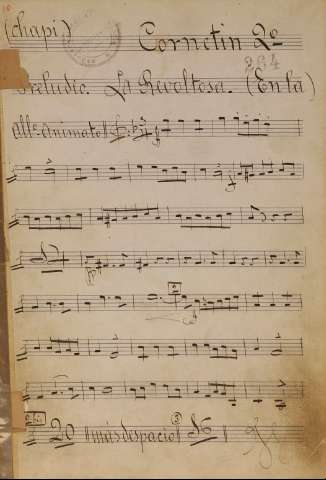 (chapí) Cornetin 2º
234
Preludio. La Revoltosa. (En la)
Allº animato
2
20 más despacio 3 16